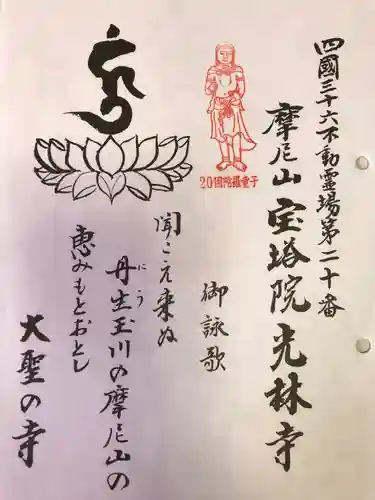 四國三十六不動霊場第二十番
摩尼山宝塔院光林寺
20因陀羅童子
御詠歌
聞こえ来ぬ
丹生玉川の摩尼山の
にう
恵みもとおとし
大聖の寺